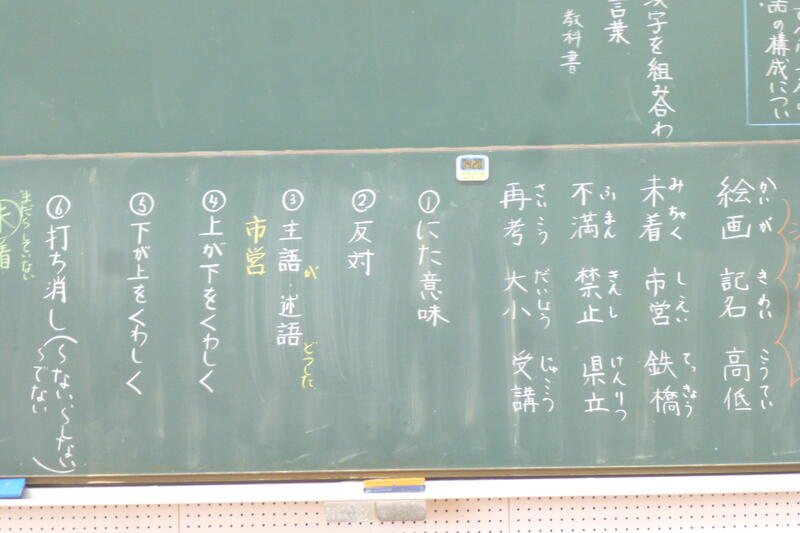 歯の構成につい
漢字を組み合わ
言葉
教科書
かいが きめい こうてい
絵画 記名 高低
みちゃく しえい てっきょう
未着 市営 鉄橋
ふまん きんし けんりつ
不満 禁止 県立
さいこう だいしょう じゅこう
再考 大小 受講
①にた意味
②反対
が どうした
③主語・述語
市営
④上が下をくわしく
⑤下が上をくわしく
⑥打ち消し(〜ない、〜しない)
〜でない
まだ〜していない
未着